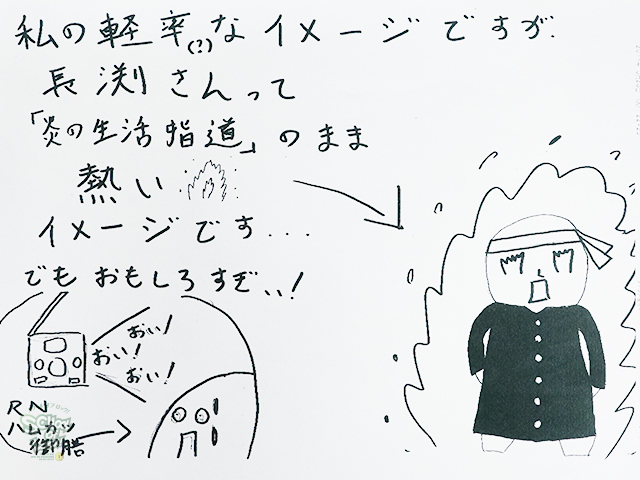 私の軽率(?)なイメージですが、
長渕さんって
「炎の生活指導」のまま
熱い
イメージです...
でもおもしろすぎぃ!
おい!
おい!
おい!
RN
ハムカツ
御膳